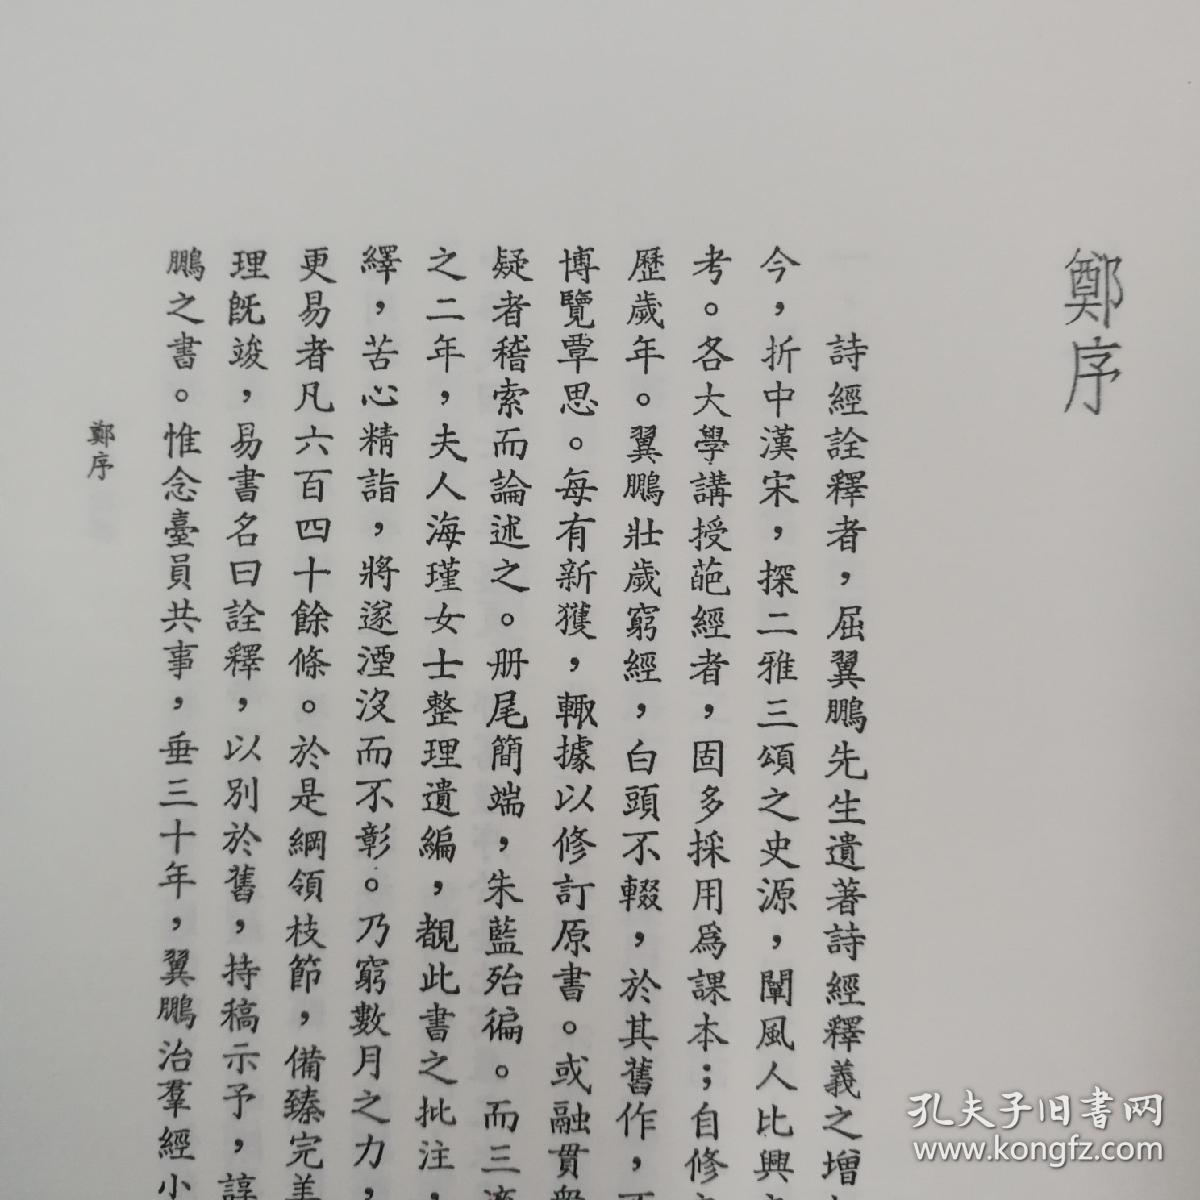 鄭序
詩經詮釋者，屈翼鵬先生遺著詩經釋義之增
今，折中漢宋，探二雅三頌之史源，闡風人比興
考。各大學講授葩經者，固多採用爲課本；自修
歷歲年。翼鵬壯歲窮經，白頭不輟，於其舊作，
博覽覃思。每有新獲，輒據以修訂原書。或融貫
疑者稽索而論述之。册尾簡端，朱藍殆徧。而三
之二年，夫人海瑾女士整理遺編，覩此書之批注，
繹，苦心精詣，將遂湮沒而不彰。乃窮數月之力，
更易者凡六百四十餘條。於是綱領枝節，備臻完美
理旣竣，易書名曰詮釋，以別於舊，持稿示予，諄
鵬之書。惟念臺員共事，垂三十年，翼鵬治羣經小
鄭序
孔夫子旧書网
www.kongfz.com